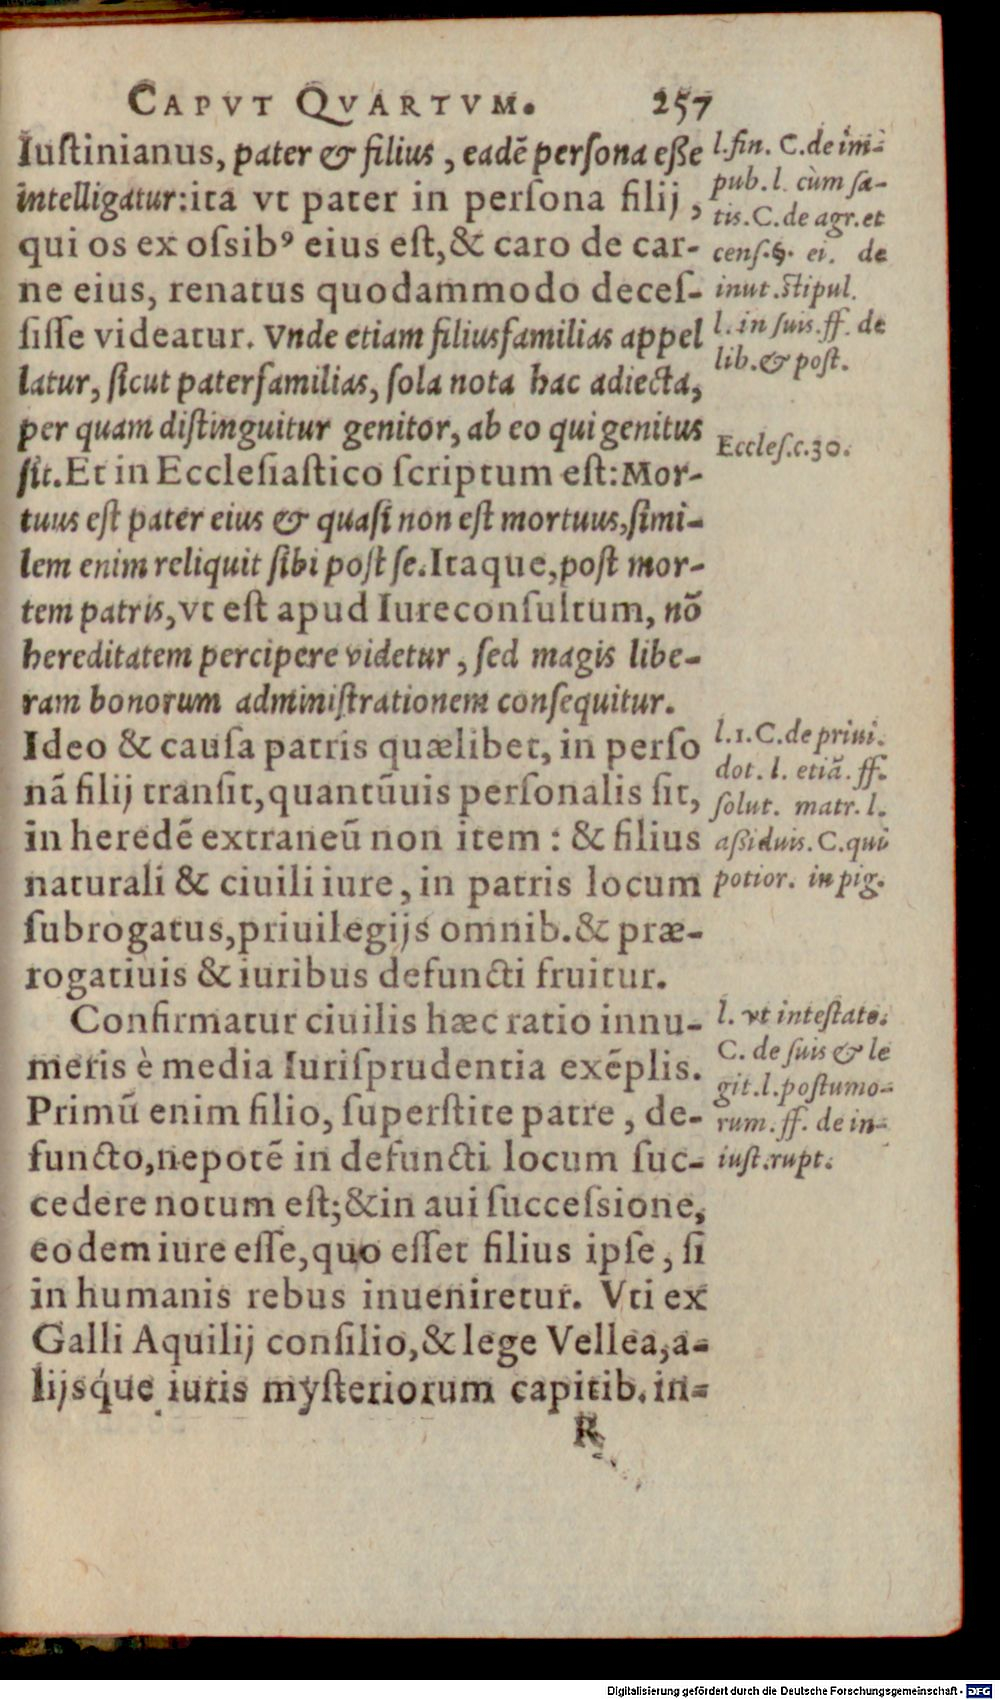 CAPVT QVARTVM. 257
Iuſtinianus, pater & filius, eadē perſona eſſe
intelligatur: ita vt pater in perſona filij,
qui os ex oſsibꝰ eius eſt, & caro de car-
ne eius, renatus quodammodo deceſ-
ſiſſe videatur. Vnde etiam filiusfamilias appel
latur, ſicut paterfamilias, ſola nota hac adiecta,
per quam diſtinguitur genitor, ab eo qui genitus
ſit. Et in Eccleſiaſtico ſcriptum eſt: Mor-
tuus eſt pater eius & quaſi non eſt mortuus, ſimi-
lem enim reliquit ſibi poſt ſe. Itaque, poſt mor-
tem patris, vt eſt apud Iureconſultum, nō
hereditatem percipere videtur, ſed magis libe-
ram bonorum adminiſtrationem conſequitur.
Ideo & cauſa patris quælibet, in perſo
nā filij tranſit, quantūuis perſonalis ſit,
in heredē extraneū non item: & filius
naturali & ciuili iure, in patris locum
ſubrogatus, priuilegijs omnib. & præ-
rogatiuis & iuribus defuncti fruitur.
Confirmatur ciuilis hæc ratio innu-
meris è media Iuriſprudentia exēplis.
Primū enim filio, ſuperſtite patre, de-
functo, nepotē in defuncti locum ſuc-
cedere notum eſt; & in aui ſucceſsione,
eodem iure eſſe, quo eſſet filius ipſe, ſi
in humanis rebus inueniretur. Vti ex
Galli Aquilij conſilio, & lege Vellea, a-
lijsq́ue iuris myſteriorum capitib. in-
R
l. fin. C. de im-
pub. l. cùm ſa-
tis. C. de agr. et
cenſ. §. ei. de
inut. ſtipul.
l. in ſuis. ff. de
lib. & poſt.
Eccleſ. c. 30.
l. 1. C. de priui.
dot. l. etiā. ff.
ſolut. matr. l.
aſſiduis. C. qui
potior. in pig.
l. vt inteſtato.
C. de ſuis & le
git. l. poſtumo-
rum. ff. de in-
iuſt. rupt.
Digitalisierung gefördert durch die Deutsche Forschungsgemeinschaft - DFG